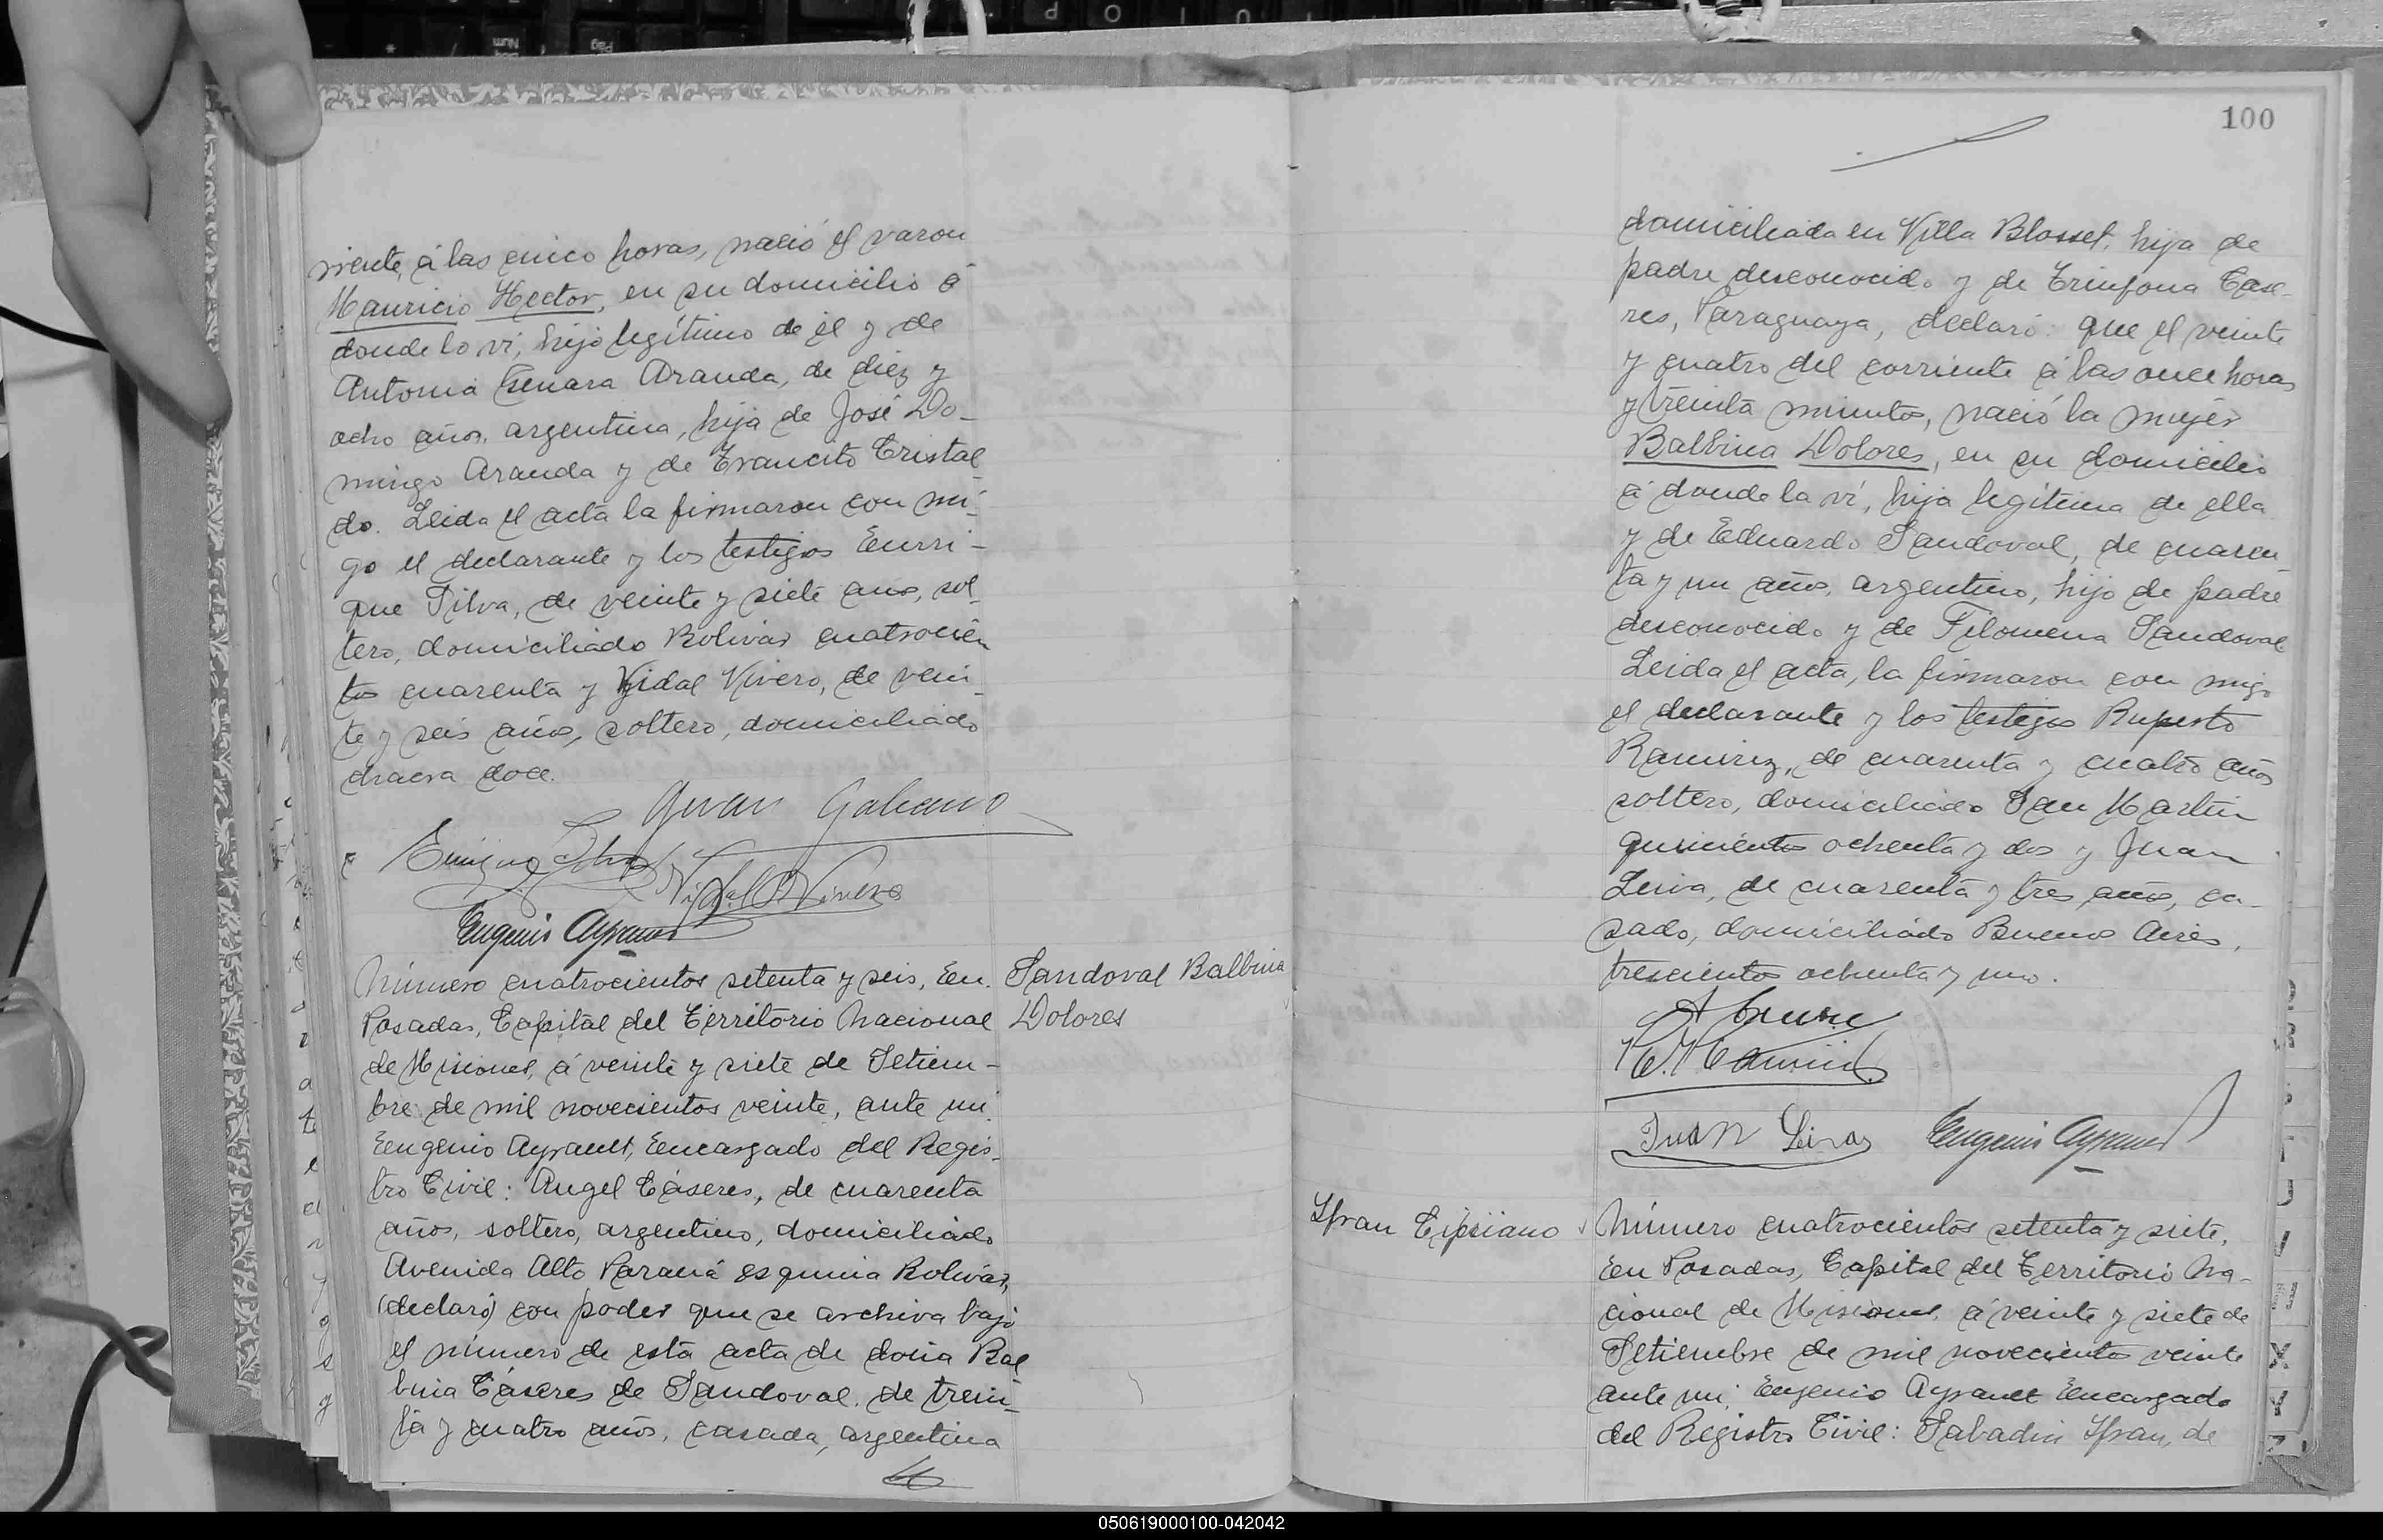 rriente, á las cinco horas, nació el varon
Mauricio Hector, en su domicilio á
donde lo vi, hijo legítimo de él y de
Antonia Genara Aranda, de diez y
ocho años, argentina, hija de José Do-
mingo Aranda y de Trancito Cristal
do. Leida el acta la firmaron con mi-
go el declarante y los testigos Enrri-
que Silva, de veinte y siete años, sol-
tero, domiciliado Bolivar cuatrocien
tos cuarenta y Vidal Vivero, de vein-
te y seis años, soltero, domiciliado
chacra doce.
Juan Galeano
Enrique Silva
Vidal Vivero
Eugenio Ayrault
Número cuatrocientos setenta y seis, En
Posadas, Capital del Territorio Nacional
de Misiones, á veinte y siete de Setiem-
bre de mil novecientos veinte, ante mi
Eengenio Ayrault, Eencargado del Regis-
tro Civil: Angel Cáseres, de cuarenta
años, soltero, argentino, domiciliado
Avenida Alto Paraná esquina Bolivar,
(declaró) con poder que se archiva bajo
el número de esta acta de doña Bal
bina Cáseres de Sandoval, de trein-
ta y cuatro años, casada, argentina
Sandoval Balbina
Dolores
100
domiciliada en Villa Blosset, hija de
padre desconocido y de Trinfona Case-
res, Paraguaya, declaró: que el veinte
y cuatro del corriente á las once horas
y treinta minutos, nació la mujer
Balbina Dolores, en su domicilio
á donde la ví, hija legítima de ella
y de Eduardo Sandoval, de cuaren-
ta y un años, argentino, hijo de padre
desconocido y de Filomena Sandoval
Leida el acta, la firmaron con migo
el declarante y los testigos Ruperto
Ramirez, de cuarenta y cuatro años
soltero, domiciliado San Martin
quinientos ochenta y dos y Juan
Leiva, de cuarenta y tres años, ca-
sado, domiciliado Buenos Aires,
trescientos ochenta y uno.
R. Ramirez
Juan Leiva
Eugenio Ayrault
Yfran Cipriano
Número cuatrocientos setenta y siete,
Een Posadas, Capital del Territorio Na-
cional de Misiones, á veinte y siete de
Setiembre de mil novecientos veinte
ante mi, Eugenio Ayrault Eencargado
del Registro Civil: Sabadin Yfran, de
050619000100-042042